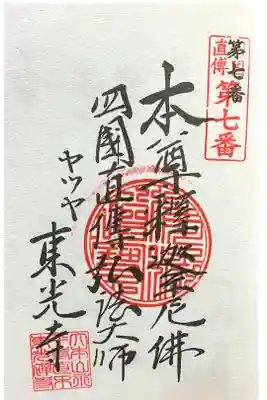 第七番
直傳
第七番
本尊釋迦牟尼佛
四國直傳弘法大師
ヤツヤ
東光寺